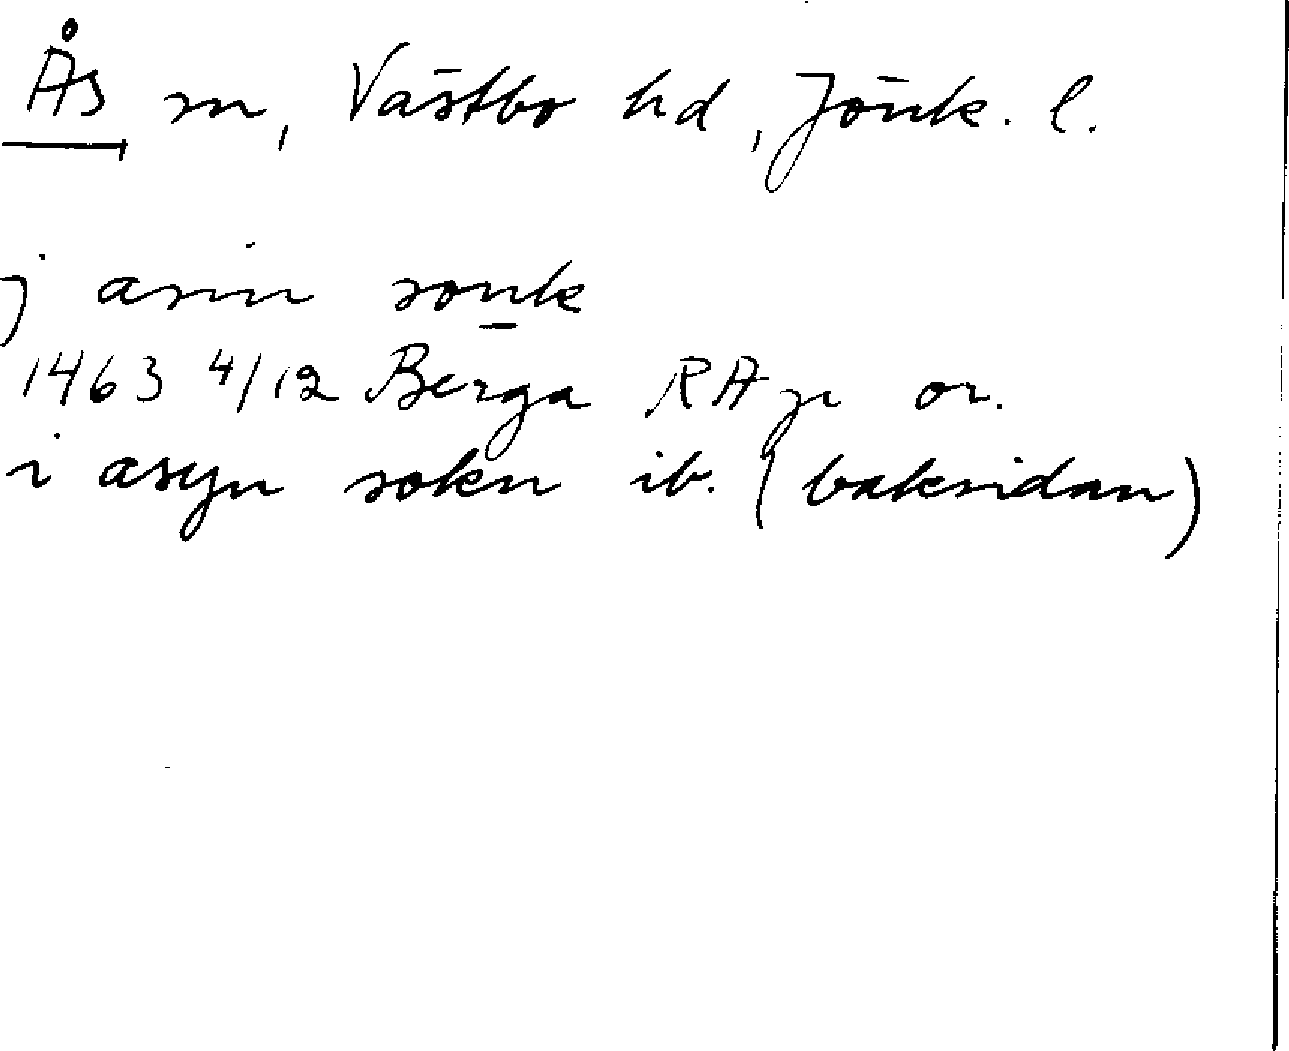 Ås sn, Västbo hd, Jönk. l.
j asin sonk
1463 4/12 Berga RAp or.
i asyn sokn ib. (baksidan)